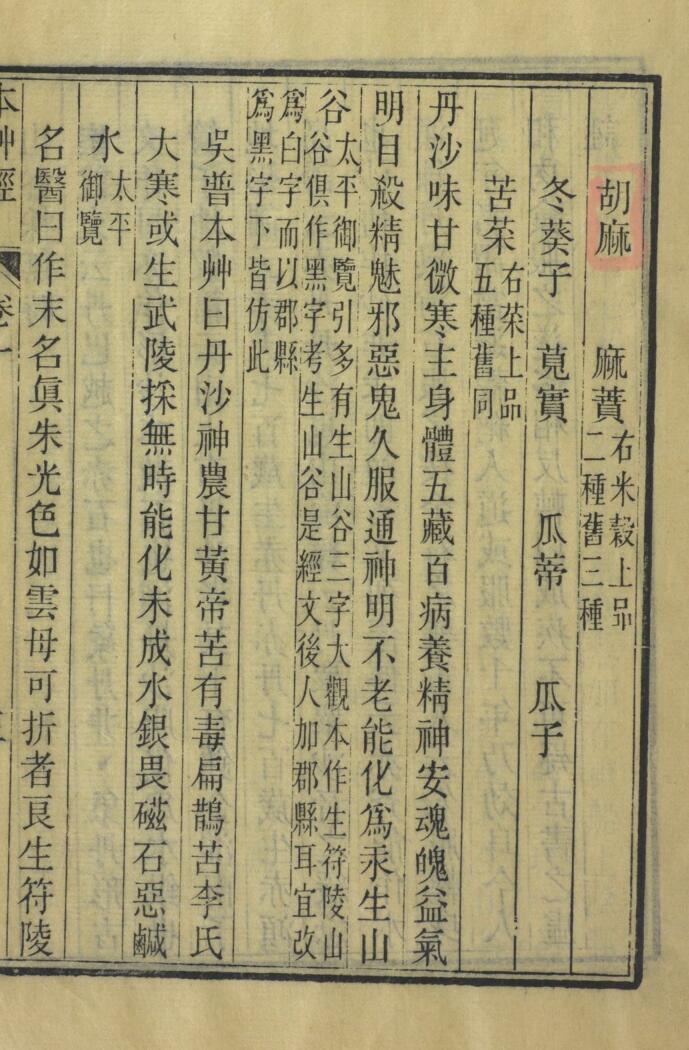 胡麻 麻蕡右米穀上品二種舊三種
冬葵子 莧實 瓜蒂 瓜子
苦菜右菜上品五種舊同
丹沙味甘微寒主身體五藏百病養精神安魂魄益氣
明目殺精魅邪惡鬼久服通神明不老能化爲汞生山
谷太平御覽引多有生山谷三字大觀本作生符陵山谷俱作黑字考生山谷是經文後人加郡縣耳宜改
爲白字而以郡縣爲黑字下皆仿此
吳普本艸曰丹沙神農甘黃帝苦有毒扁鵲苦李氏
大寒或生武陵採無時能化未成水銀畏磁石惡鹹
水太平御覽
名醫曰作末名眞朱光色如雲母可折者良生符陵
本艸經 卷一